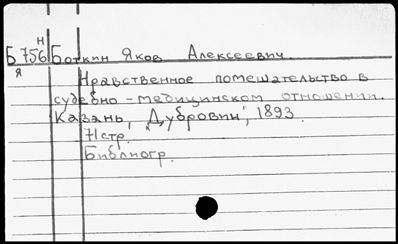 Н
Б 756 Боткин Яков Алексеевич.
Я
Нравственное помешательство в
судебно-медицинском отношении.
Казань, "Дубровин", 1893.
71 стр.
Библиогр.